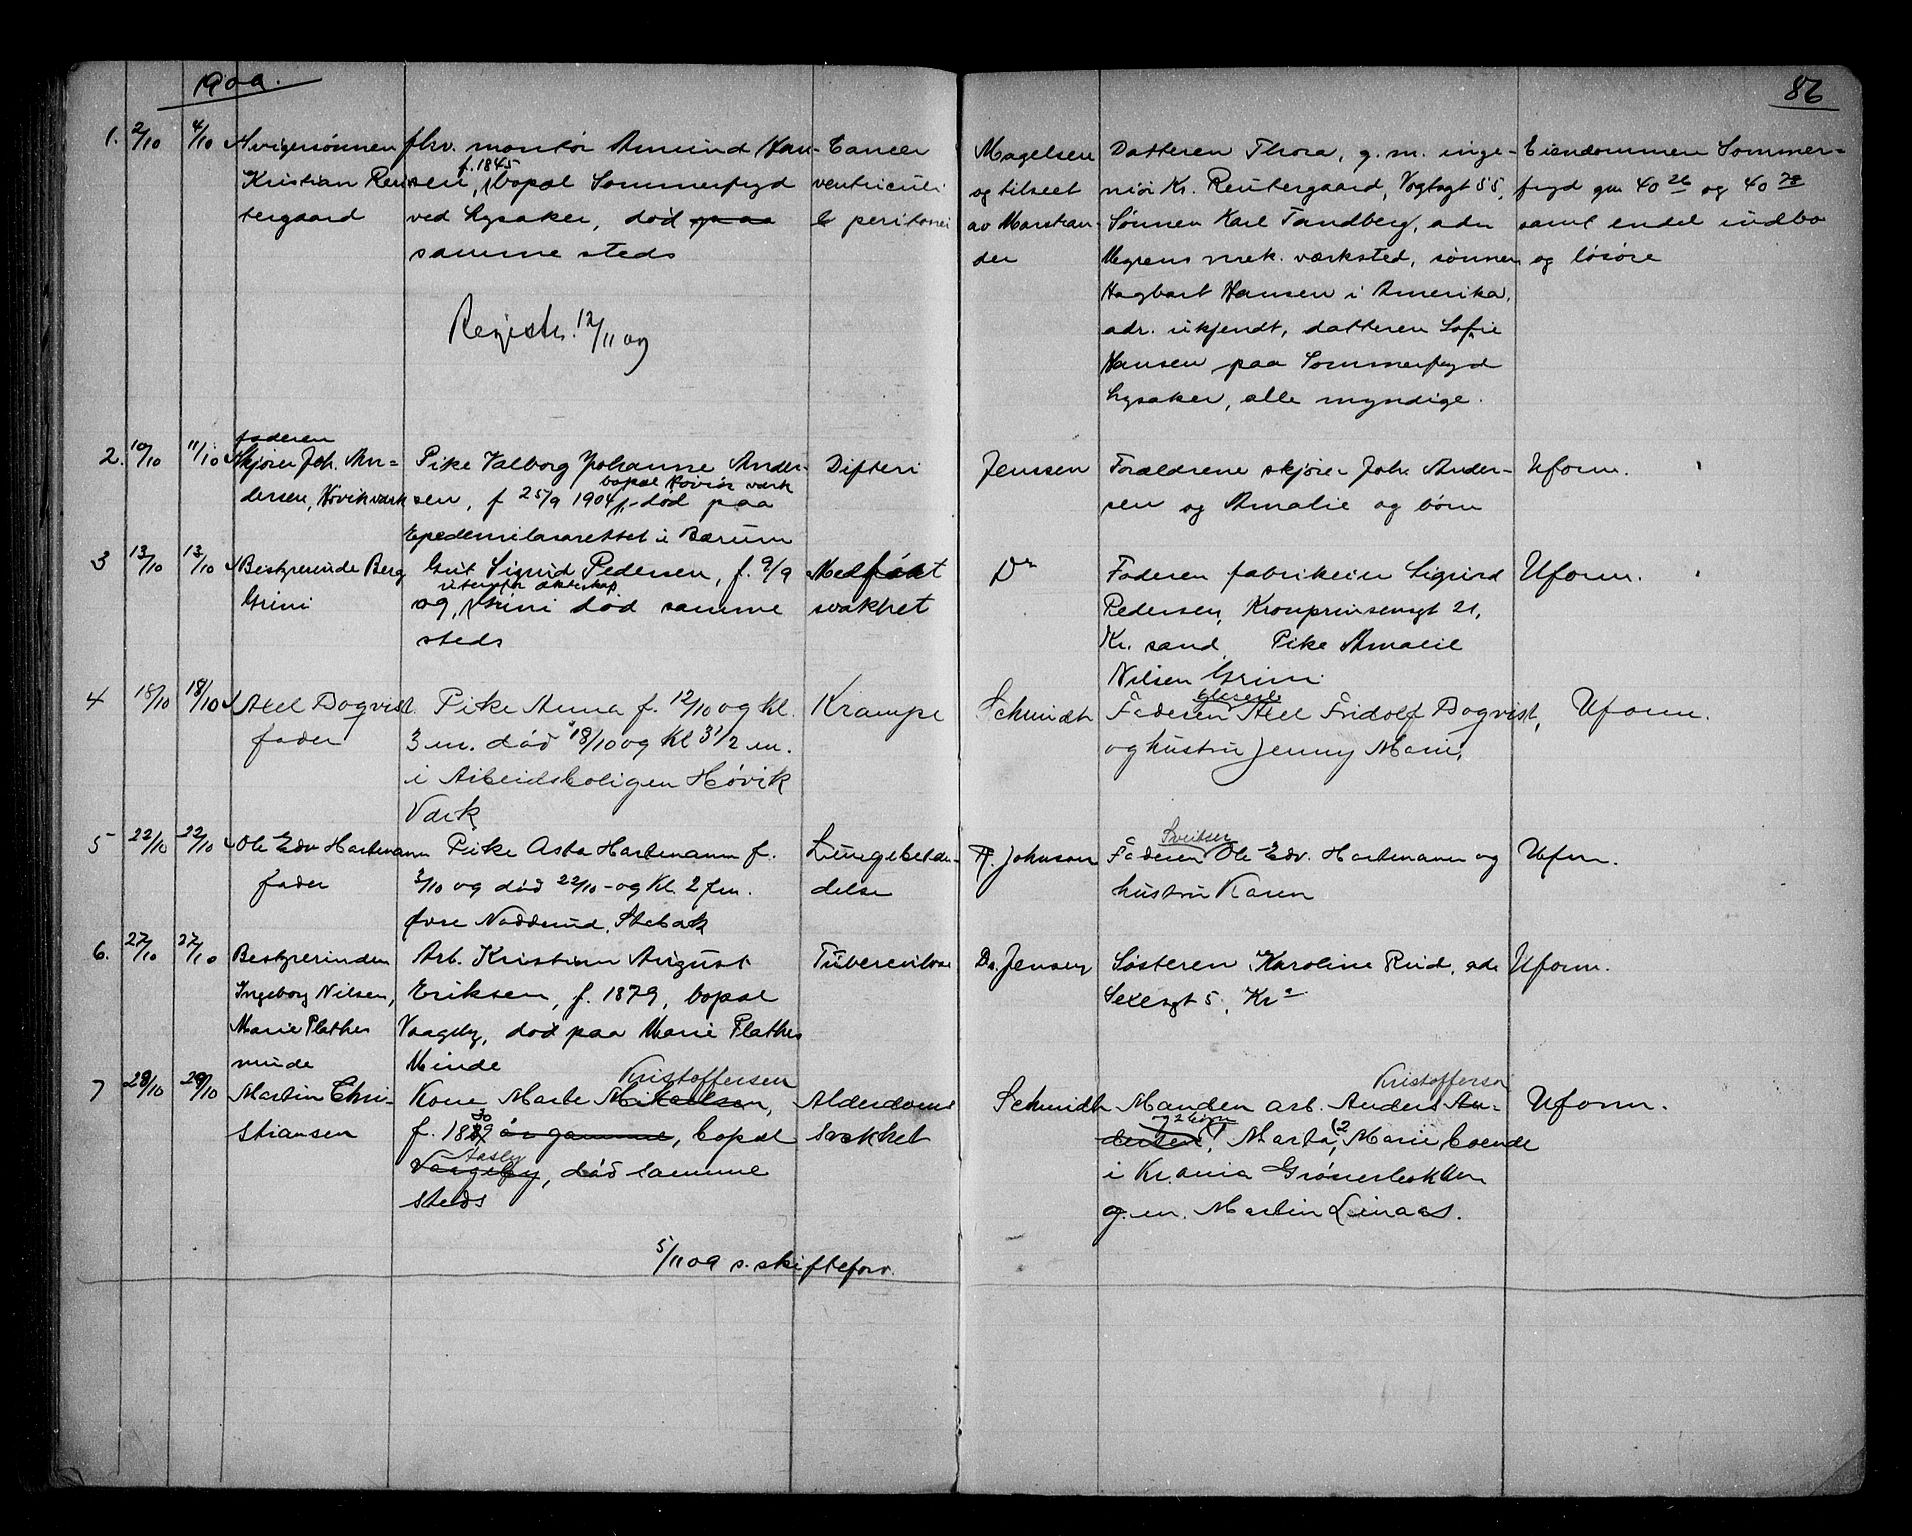 1909.
86
1. 2/10 4/10 Svigersønnen fhv. montör Amund Han- Cancer Magelsen Datteren Thora, g. m. inge- Eiendommen Sommer-
f. 1845
Kristian Reu- sen, bopæl Sommerfryd ventriculi og tilseet niör Kr. Reutergaard, Vogtsgt 55, fryd gnr 40 26 og 40 78
tergaard ved Lysaker, död paa & peritonei av Marstran- Sönnen Karl Tandberg, adr samt endel indbo
samme steds der Myrens mek. værksted, sönnen og lösöre
Hagbart Hansen i Amerika,
Registr. 12/11 09 adr. ukjendt, datteren Sofie
Hansen paa Sommerfryd
Lysaker, alle myndige.
faderen
2. 10/10 11/10 Skjörer Joh. An- Pike Valborg Johanne Ander- Difteri Jenssen Forældrene skjörer Joh. Ander- Uform.
bopæl Hövik værk
dersen, Hövik værk sen, f 25/9 1904, död paa sen og Amalie og börn
Epedemilasarettet i Bærum
3 13/10 13/10 Bestyrerinde Berg Gut Sigurd Pedersen, f. 9/9 Medfödt Dr Faderen fabrikeier Sigurd Uform.
utenfor ekteskap
Grini 09, Grini död samme svakhet Pedersen, Kronprinsensgt 21,
steds Kr. sand. Pike Amalie
Nilsen Grini
4 18/10 18/10 Axel Bogvist Pike Anna f. 12/10 09 Kl. Krampe Schmidt Faderen Axel Fridolf Bogvist, Uform.
fader 3 em. död 18/10 09 Kl 3 1/2 em. og hustru Jenny Marie,
i Arbeidsboligen Høvik
Værk
Sveitser
5 22/10 22/10 Ole Edv Hartmann Pike Asta Hartmann f. Lungebetæn- Johnson Faderen Ole Edv. Hartmann og Ufor.
fader 3/10 09 död 22/10-09 Kl. 2 fm. delse hustru Karen
övre Nadderud, Stabæk
6. 27/10 27/10 Bestyrerinden Arb. Kristian August Tuberculose Dr. Jensen Søsteren Karoline Ruid, adr Uform.
Ingeborg Nilsen, Eriksen, f. 1879, bopæl Sexesgt 5, Kr a
Marie Plathes Vaageby, död paa Marie Plathes
minde Minde
Kristoffersen Kristoffersen
7 28/10 29/10 Martin Chri- Kone Marte Mikaelsen, Alderdoms Schmidt Manden arb. Anders An- Uform.
30 og 2 börn
stiansen f. 1829 år gammel, bopæl svakhet dersen, Marta, Marie boende
Aasby
Vaageby, död samme i Kr.ania Grönerløkken
steds g. m. Martin Linaas.
5/11 09 s. skifteforv.